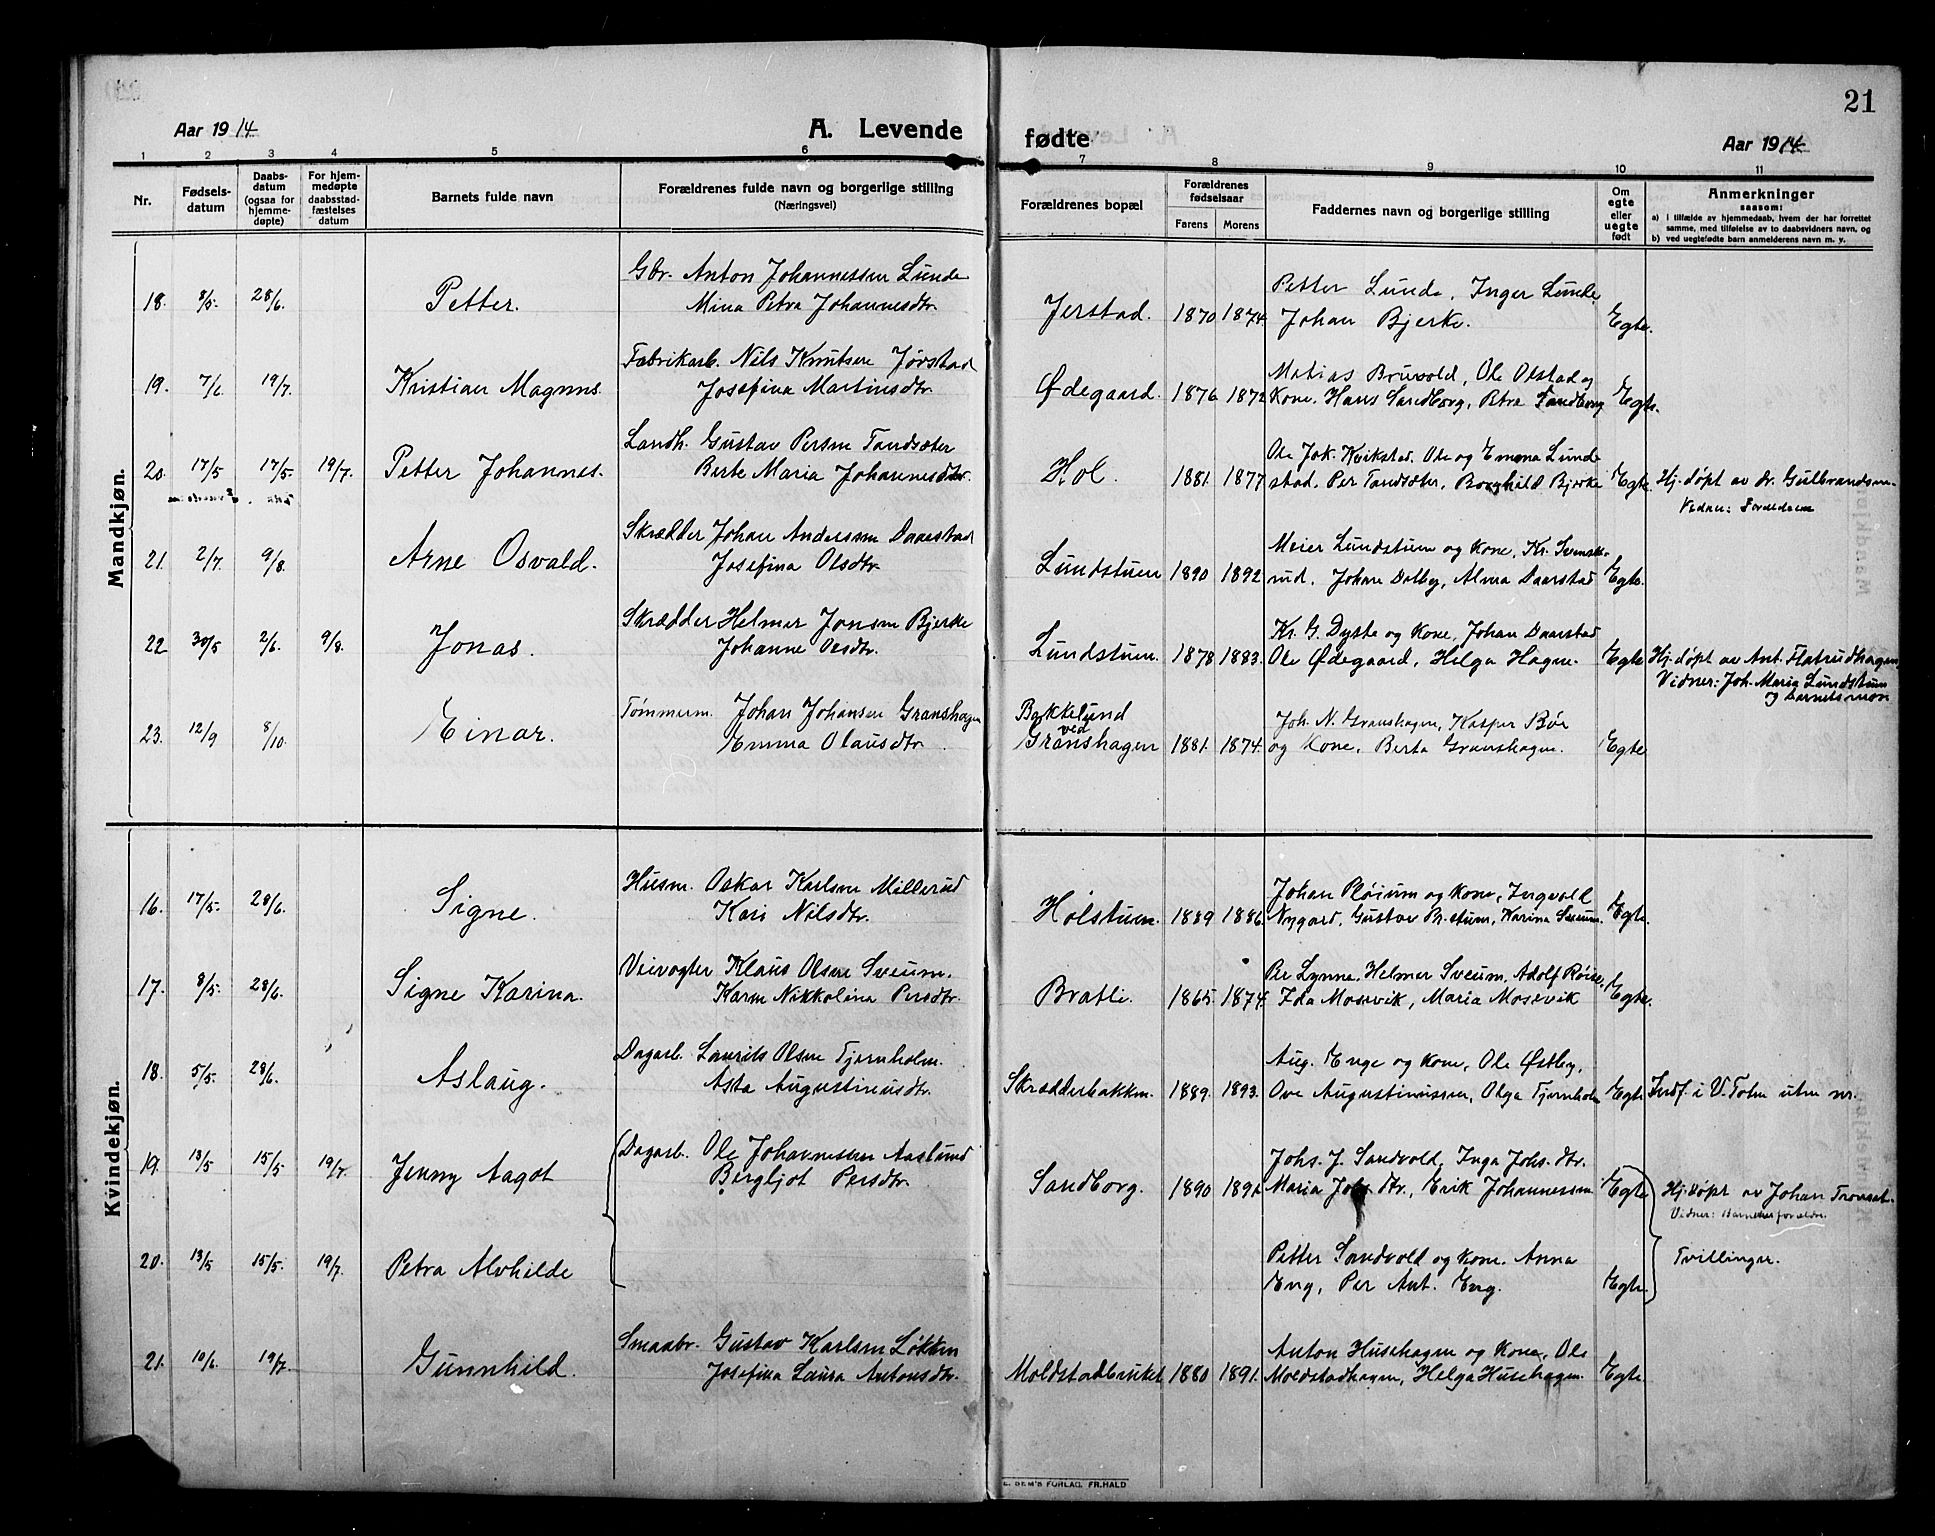 21
Aar 1914. A. Levende fødte Aar 1914
1 2 3 4 5 6 7 8 9 10 11
Nr. Fødsels-datum Daabs-datum (ogsaa for hjemme-døpte) For hjem-medøpte daabsstad-fæstelses datum Barnets fulde navn Forældrenes fulde navn og borgerlige stilling (Næringsvei) Forældrenes bopæl Forældrenes fødselsaar Farens Morens Faddernes navn og borgerlige stilling Om egte eller uegte født Anmerkninger saasom: a) i tilfælde av hjemmedaab, hvem der har forrettet samme, med tilføielse av to daabsvidners navn, og b) ved uegtefødte barn anmelderens navn m. v.
Mandkjøn.
Gbr. Anton Johannessen Lunde Petter Lunde, Inger Lunde
18. 8/5. 28/6. Petter. Mina Petra Johannesdtr. Jerstad. 1870 1874. Johan Bjerke. Egte.
Fabrikarb. Nils Knutsen Jørstad Matias Bruvold, Ole Olstad og
19. 7/6. 19/7. Kristian Magnus. Josefina Martinsdtr. Ødegaard. 1876 1872 Kone, Hans Sandborg, Petra Sandborg Egte.
Landh. Gustav Persen Tandsæter Ole Joh. Kvikstad, Ole og Emma Lunde
20. 17/5 17/5 19/7. Petter Johannes. Berte Maria Johannesdtr. Hol. 1881. 1877 stad, Per Tandsæter, Borghild Bjerke Egte. Hj. døpt av dr. Gulbrandsen.
Vidner: Forældrene
Skrædder Johan Andersen Daarstad Meier Lundstuen og Kone, Kr. Svensk-
21. 2/7. 9/8. Arne Osvald. Josefina Olsdtr. Lundstuen 1890 1892 rud, Johan Dalby, Alma Daarstad Egte.
Skrædder Helmer Jonsen Bjerke Kr. G. Dyste og Kone, Johan Daarstad
22 30/5 2/6. 9/8. Jonas. Johanne Olsdtr. Lundstuen. 1878 1883. Ole Ødegaard, Helga Hagen. Egte Hj. døpt av Ant. Flatrudhagen
Vidner: Joh. Maria Lundstuen
og barnets mor
Tømmerm. Johan Johansen Granshagen Bakkelund ved Joh. N. Granshagen, Kasper Bøe
23. 12/9 8/10. Einar. Emma Olausdtr. Granshagen 1881. 1874. og Kone, Berta Granshagen. Egte
Kvindekjøn.
Husm. Oskar Karlsen Millerud Johan Pløium og Kone, Ingvald
16. 17/5. 28/6. Signe. Kari Nilsdtr. Holstuen. 1889 1886. Nygard, Gustav M.stuen, Karina Sveum. Egte.
Veivogter Klaus Olsen Sveum. Per Lynne, Helmer Sveum, Adolf Røise,
17. 8/5. 28/6. Signe Karina. Karen Nikkolina Persdtr. Bratli. 1865. 1874. Ida Mosevik, Maria Mosevik Egte.
Dagarb. Laurits Olsen Tjernholm. Aug. Enge og Kone, Ole Østby,
18. 5/5. 28/6. Aslaug. Asta Augustinusdtr. Skrædderbakken. 1889. 1893. Ove Augustinussen, Olga Tjernholm Egte Indf. i V. Toten uten nr.
Dagarb. Ole Johannessen Aaslund Johs. J. Sandvold, Inga Johs. dtr.
19. 13/5 15/5 19/7. Jenny Aagot Bergljot Persdtr. Sandborg. 1890 1891. Maria Johs. dtr., Erik Johannessen Egte Hj. døpt av Johan Tronset.
Vidner: Barnets forældre.
Petter Sandvold og Kone. Anna Tvillinger.
20. 13/5 15/5. 19/7. Petra Alvhilde Eng, Per Ant. Eng. Egte.
Smaabr. Gustav Karlsen Løkken Anton Husehagen og Kone, Ole
21. 10/6. 19/7. Gunnhild. Josefina Laura Antonsdtr. Moldstadbruket 1880 1891. Moldstadhagen, Helga Husehagen. Egte.
E. SEM'S FORLAG, FR.HALD